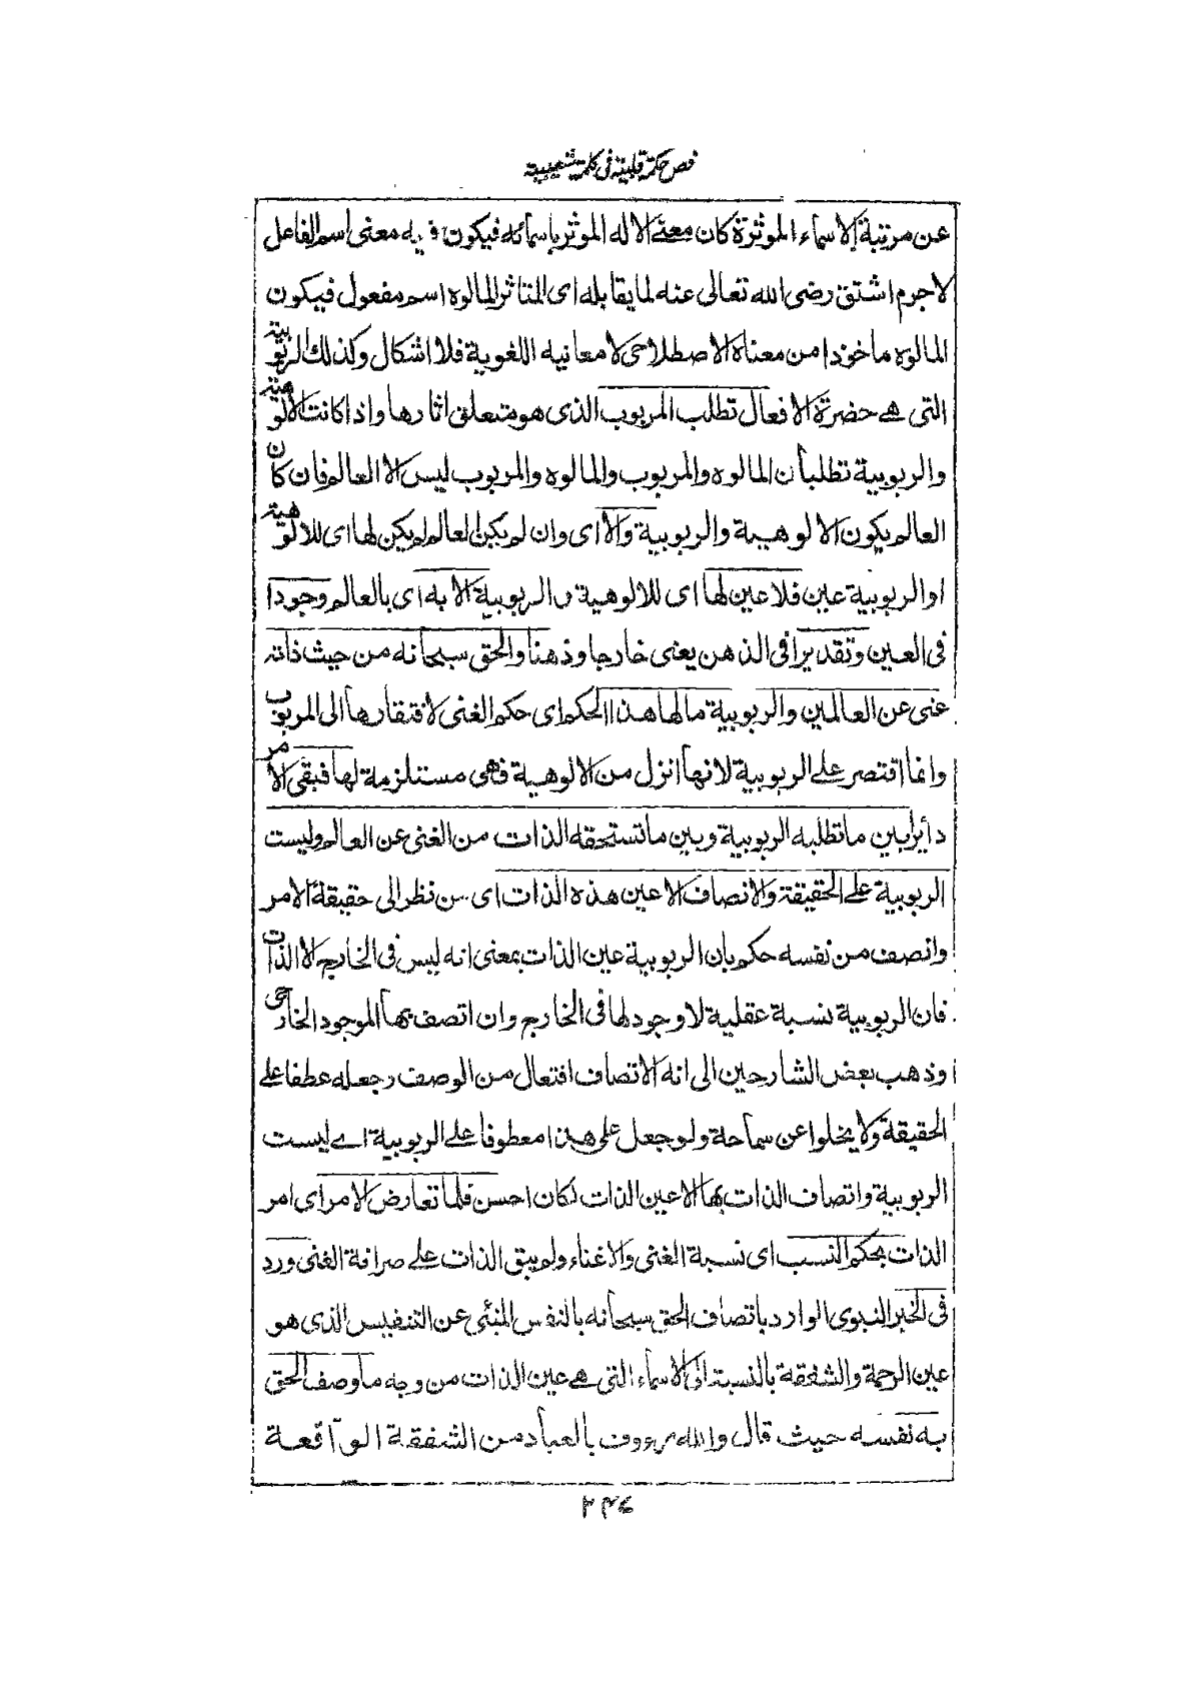 فص حكمة قلبية فى كلمة شعيبية
عن مرتبة الاسماء المؤثرة كان معنى الاله المؤثر باسمائه فيكون فيه معنى اسم الفاعل
لاجرم اشتق رضى الله تعالى عنه لما يقابله اى المتاثر المالوه اسم مفعول فيكون
المالوه ماخوذا من معناه الاصطلاحى لا معانيه اللغوية فلا اشكال وكذلك الربوبية
التى هى حضرة الافعال تطلب المربوب الذى هو متعلق اثارها واذا كانت الالوهية
والربوبية تطلبان المالوه والمربوب والمالوه والمربوب ليس الا العالم فان كان
العالم يكون الالوهية والربوبية والا اى وان لم يكن العالم لم يكن لها اى للالوهية
او الربوبية عين فلا عين لها اى للالوهية والربوبية الا به اى بالعالم وجودا
فى العين وتقديرا فى الذهن يعنى خارجا وذهنا والحق سبحانه من حيث ذاته
غنى عن العالمين والربوبية ما لها هذا الحكم اى حكم الغنى لافتقارها الى المربوب
وانما اقتصر على الربوبية لانها انزل من الالوهية فهى مستلزمة لها فبقى الامر
دائرا بين ما تطلبه الربوبية وبين ما تستحقه الذات من الغنى عن العالم وليست
الربوبية على الحقيقة والانصاف الا عين هذه الذات اى من نظر الى حقيقة الامر
وانصف من نفسه حكم بان الربوبية عين الذات بمعنى انه ليس فى الخارج الا الذات
فان الربوبية نسبة عقلية لا وجود لها فى الخارج وان اتصف بها الموجود الخارجى
وذهب بعض الشارحين الى انه الاتصاف افتعال من الوصف وجعله عطفا على
الحقيقة ولا يخلوا عن سماحة ولو جعل على هذا معطوفا على الربوبية اے ليست
الربوبية واتصاف الذات بها الا عين الذات لكان احسن فلما تعارض الامر اى امر
الذات بحكم النسب اى نسبة الغنى والاغناء ولم يبق الذات على صرافة الغنى ورد
فى الخبر النبوى الوارد باتصاف الحق سبحانه بالنفس المنبئ عن التنفيس الذى هو
عين الرحمة والشفقة بالنسبة الى الاسماء التى هى عين الذات من وجه ما وصف الحق
به نفسه حيث قال والله رءووف بالعباد من الشفقة الواقعة